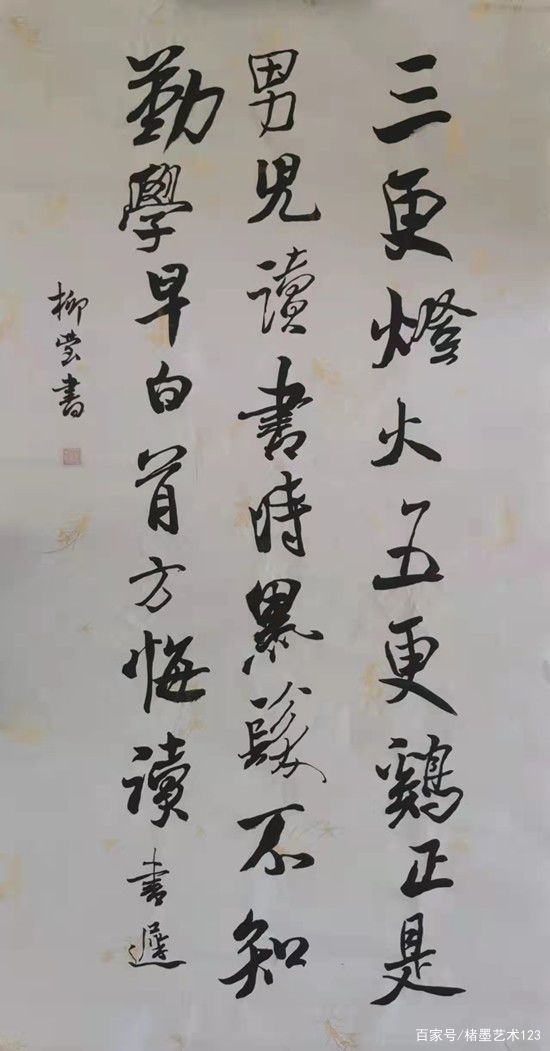 三更燈火五更鷄正是
男児讀書時黑髮不知
勤學早白首方悔讀書遲
柳莹書
百家号/楮墨艺术123